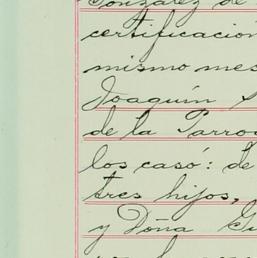 González de
certificación
mismo mes
Joaquín
de la Parro
los casó: de
tres hijos,
y Doña